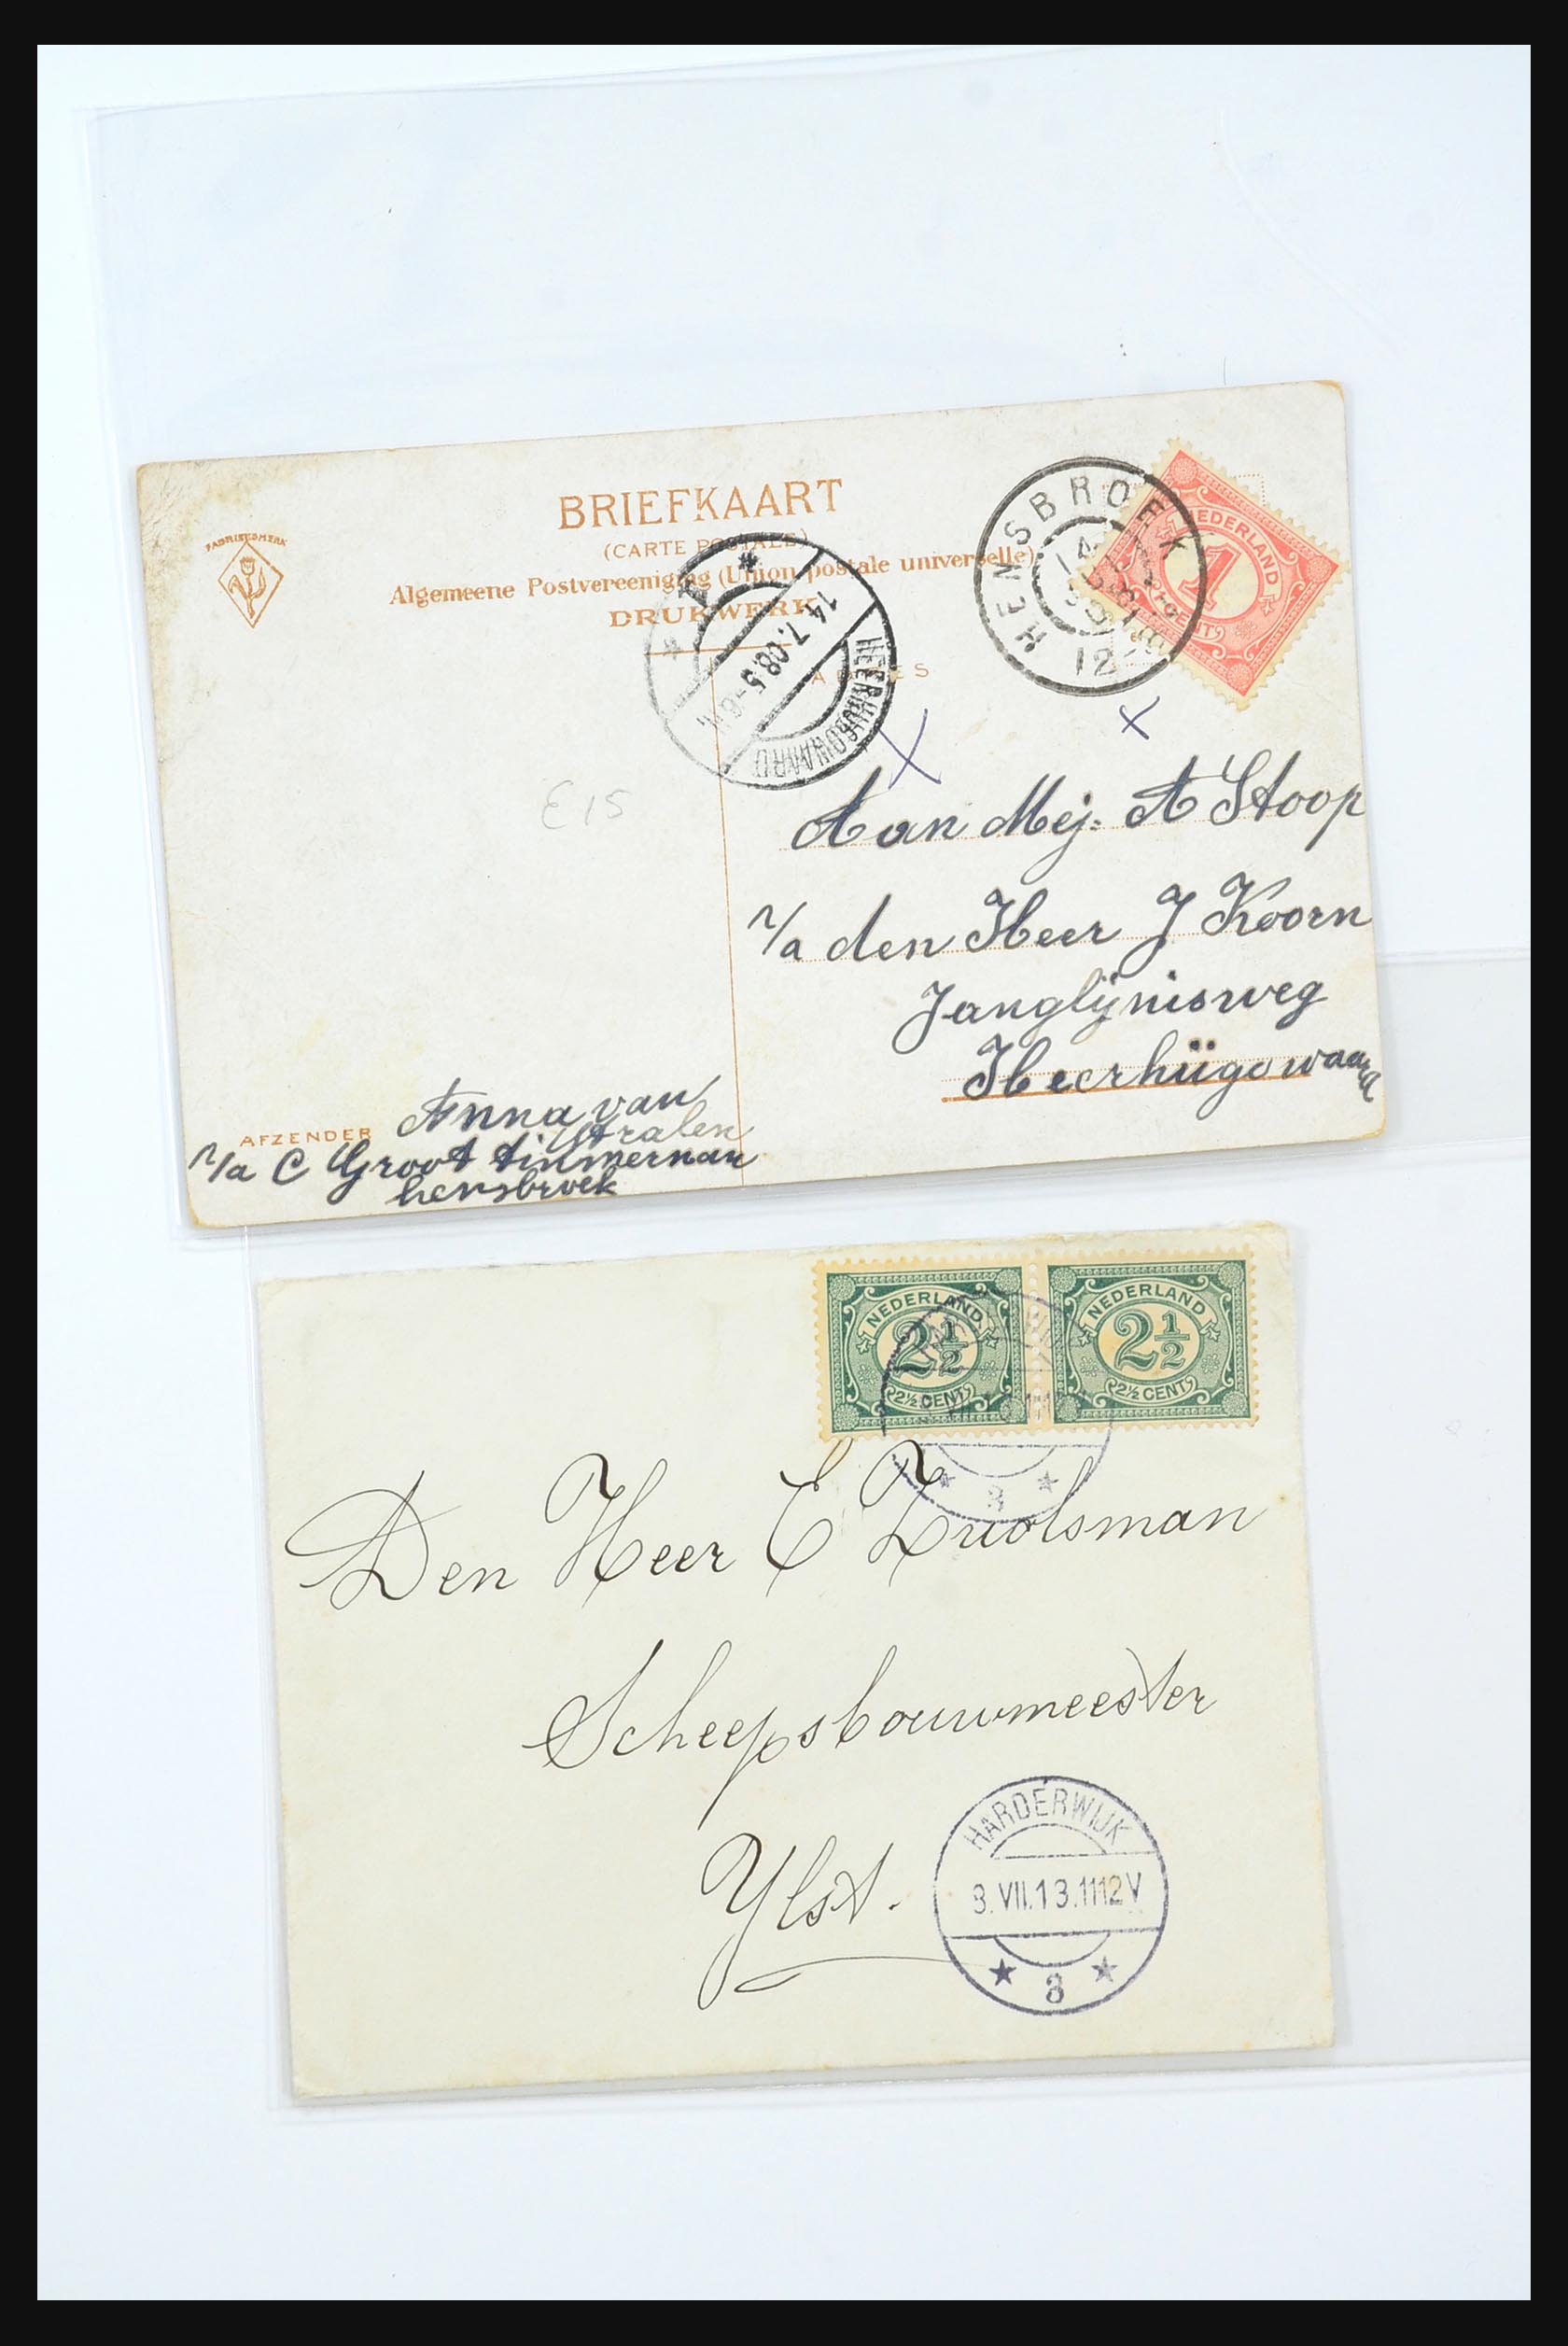 FABRIEKSMERK
BRIEFKAART
(CARTE POSTALE)
Algemeene Postvereeniging (Union postale universelle)
DRUKWERK
HENSBROEK
12
NEDERLAND
1
CENT
14.7.08.5-6
HEERHUGOWAARD
E15
Aan Mej. A Stoop
p/a den Heer J Koorn
Janglijnisweg
Heerhügowaard
AFZENDER Anna van
Stralen
p/a C Groot timmerman
hensbroek
NEDERLAND
2½
2½ CENT
NEDERLAND
2½
2½ CENT
3
Den Heer E Zuolsman
Scheepsbouwmeester
Ylst.
HARDERWIJK
3.VII.13.1112V
3